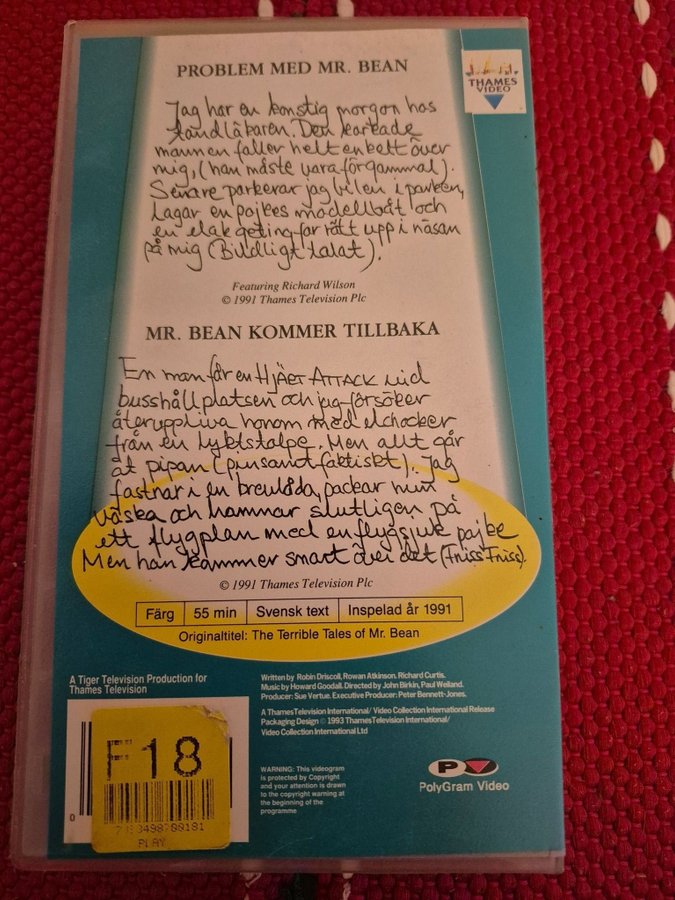 PROBLEM MED MR. BEAN
THAMES
VIDEO
Jag har en konstig morgon hos
tandläkaren. Den stackade
mannen faller helt enkelt över
mig, (han måste vara för gammal).
Senare parkerar jag bilen i parken,
lagar en pojkes modellbåt och
en elak geting far rätt upp i näsan
på mig (Bildligt talat).
Featuring Richard Wilson
© 1991 Thames Television Plc
MR. BEAN KOMMER TILLBAKA
En man får en HJÄRT ATTACK vid
busshållplatsen och jag försöker
återuppliva honom med elchocker
från en lyktstolpe. Men allt går
åt pipan (pinsamt faktiskt). Jag
fastnar i en brevlåda, packar min
väska och hamnar slutligen på
ett flygplan med en flygsjuk pojke
Men han kommer snart över det (Fniss Fniss).
© 1991 Thames Television Plc
Färg 55 min Svensk text Inspelad år 1991
Originaltitel: The Terrible Tales of Mr. Bean
A Tiger Television Production for
Thames Television
Written by Robin Driscoll, Rowan Atkinson. Richard Curtis.
Music by Howard Goodall. Directed by John Birkin, Paul Weiland.
Producer: Sue Vertue. Executive Producer: Peter Bennett-Jones.
A Thames Television International/ Video Collection International Release
Packaging Design © 1993 Thames Television International/
Video Collection International Ltd
WARNING: This videogram
is protected by Copyright
and your attention is drawn
to the copyright warning at
the beginning of the
programme
PolyGram Video
F18
0
PLAY